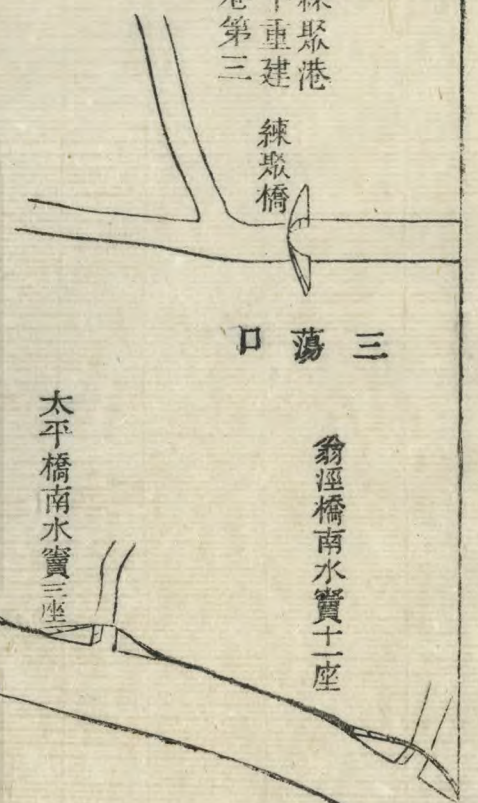 練聚港
重建
港第三
練聚橋
三蕩口
翁涇橋南水竇十一座
太平橋南水竇三座